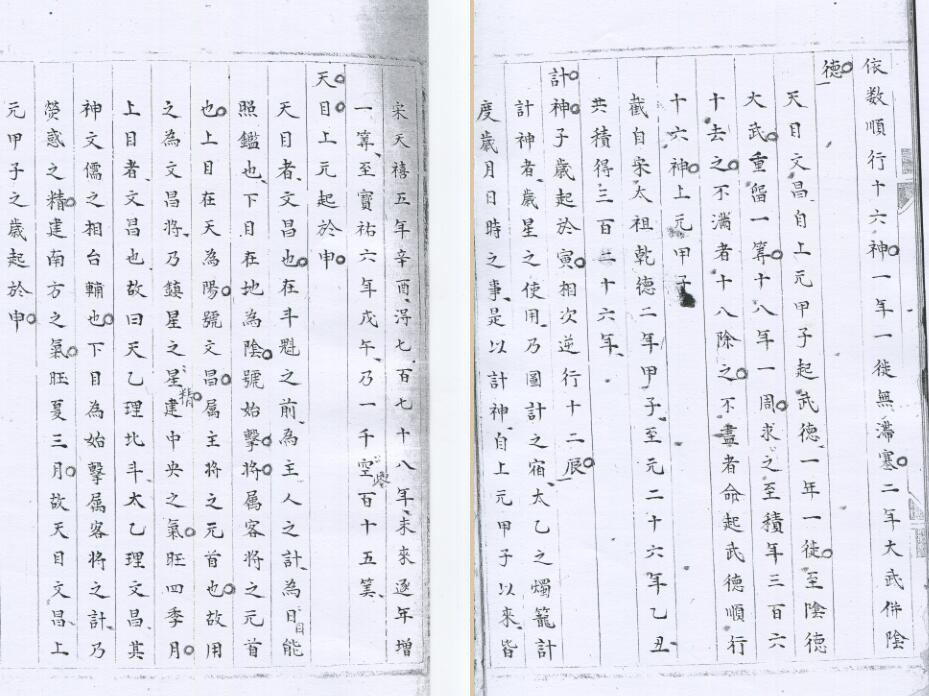 依数順行十六神一年一徙無滯塞二年大武佛陰
德
天目文昌自上元甲子起武德一年一徙至陰德
大武重留一筭十八年一周求之至積年三百六
十去之不滿者十八除之不盡者命起武德順行
十六神上元甲子
截自宋太祖乾德二年甲子至元二十六年乙丑
共積得三百二十六年
計神子歲起於寅相次逆行十二辰
計神者歲星之使用乃圖計之宿太乙之燭籠計
度歲月日時之事是以計神自上元甲子以來皆
宋天禧五年辛酉浔七百七十八年未來逐年增
一筭至寳祐六年戊午乃一千空百十五筭
天目上元起於申
天目者文昌也在斗魁之前為主人之計為日目能
照鑑也下目在地為陰號始擊將属客將之元首
也上目在天為陽號文昌属主將之元首也故用
之為文昌將乃鎮星之星精建中央之氣旺四季月
上目者文昌也故曰天乙理北斗太乙理文昌其
神文儒之相台輔也下目為始擊属客將之計乃
熒惑之精建南方之氣旺夏三月故天目文昌上
元甲子之歲起於申